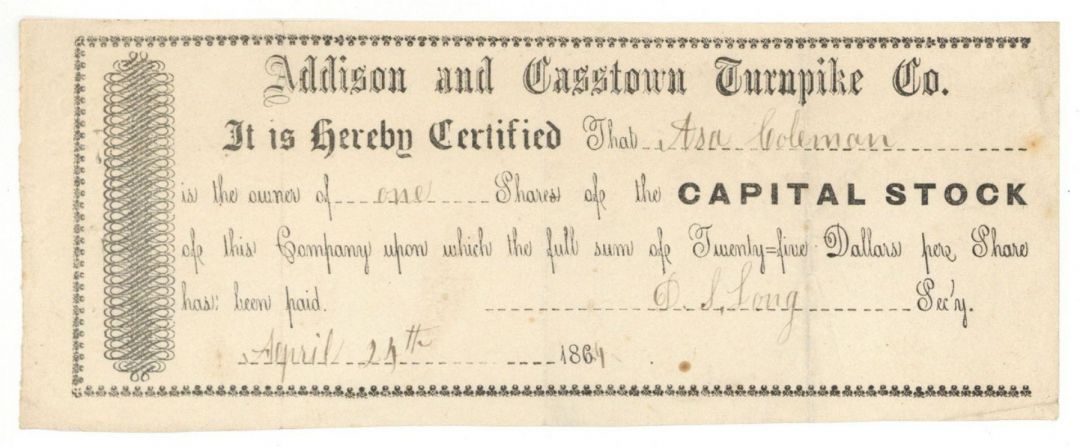 Addison and Casstown Turnpike Co.
It is Hereby Certified That Asa Coleman
is the owner of one Shares of the CAPITAL STOCK
of this Company upon which the full sum of Twenty=five Dollars per Share
has been paid. D. S. Long Sec'y.
April 1864